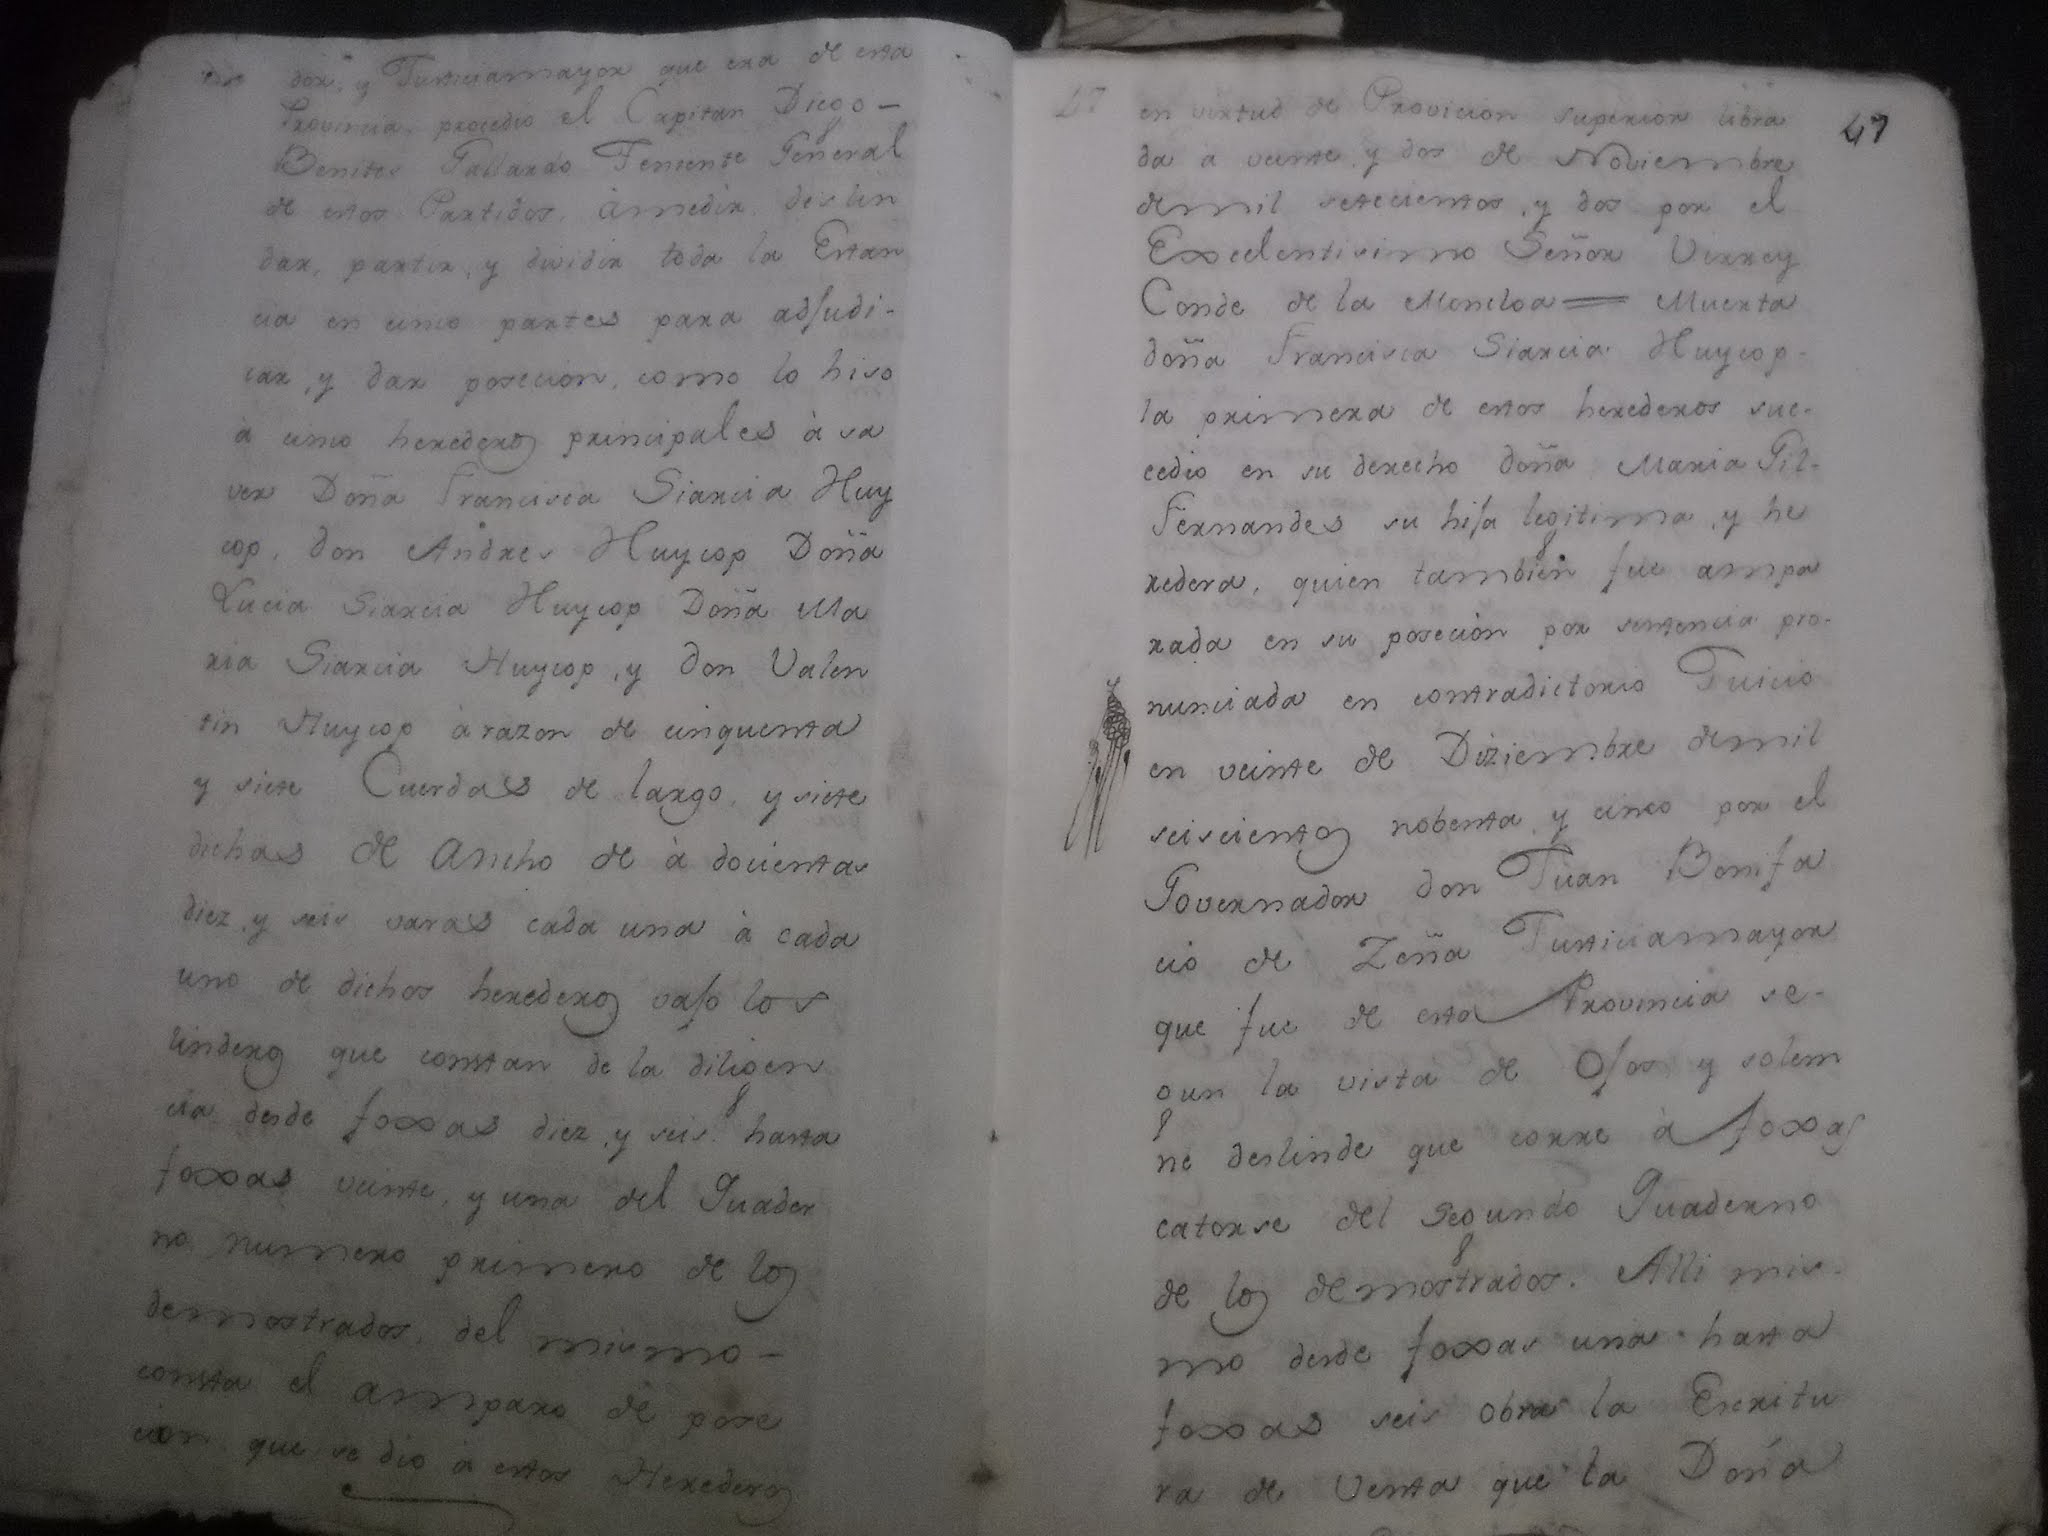 dor, y Justiciamayor que era de esta
Provincia, procedio el Capitan Diego -
Benites Gallardo Teniente General
de estos Partidos, à medir, deslin
dar, partir, y dividir toda la Estan
cia en cinco partes para adjudi-
car, y dar posecion, como lo hiso
à cinco herederos principales à sa
ver Doña Francisca Siancia Huy
cop, don Andres Huycop Doña
Lucia Siancia Huycop Doña Ma
ria Siancia Huycop, y don Valen
tin Huycop à razon de cinquenta
y siete Cuerdas de largo, y siete
dichas de Ancho de à docientas
diez, y seis varas cada una à cada
uno de dichos herederos vajo los
linderos que constan de la diligen
cia desde foxas diez, y seis hasta
foxas veinte, y una del Quader
no numero primero de los
demostrados, del mismo -
consta el amparo de pose
cion que se dio à estos Herederos
47
47
en virtud de Provicion superior libra
da à veinte, y dos de Noviembre
de mil setecientos, y dos por el
Excelentisimo Señor Virrey
Conde de la Moncloa = Muerta
doña Francisca Siancia Huycop-
la primera de estos herederos suc-
cedio en su derecho doña Maria Gil-
Fernandes su hija legitima, y he
redera, quien tambien fue ampa
rada en su posecion por sentencia pro-
nunciada en contradictorio Juicio
en veinte de Diziembre de mil
seiscientos nobenta, y cinco por el
Governador don Juan Bonifa
cio de Zeña Justiciamayor
que fue de esta Provincia se-
gun la vista de Ojos, y solem
ne deslinde que corre à foxas
catorse del segundo Quaderno
de los demostrados. Alli mis-
mo desde foxas una hasta
foxas seis obra la Escritu
ra de Venta que la Doña